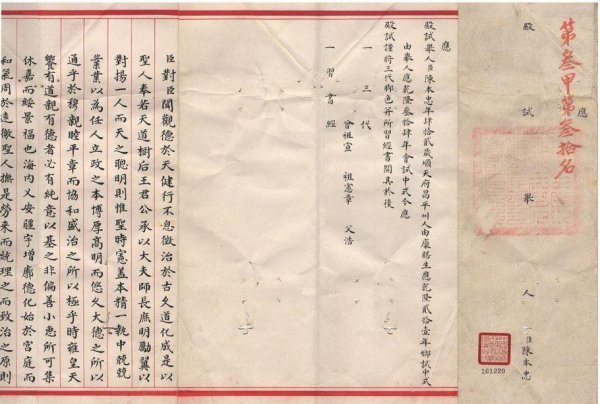 第叁甲第叁拾名
應
殿試舉人臣陳本忠
161220
應
殿試舉人臣陳本忠年肆拾貳歲順天府昌平州人由廩膳生應乾隆貳拾壹年鄉試中式
由舉人應乾隆叁拾肆年會試中式今應
殿試謹將三代腳色并所習經書開具於後
一 三代
曾祖宣 祖憲章 父浩
一 習書經
臣對臣聞觀德於天健行不息徵治於古久道化成是以
聖人奉若天道樹后王君公承以大夫師長庶明勵翼以
對揚一人而天之聰明則惟聖時憲蓋本精一執中兢兢
業業以為任人立政之本博厚高明而悠久大德之所以
通乎於穆親睦平章而協和盛治之所以極乎時雍皇天
饗有道親有德者必有純意以基之非偏善小惠所可集
休嘉而綏景福也海內乂安疆宇增廓德化始於宮庭而
和氣周於遠徼聖人撫是勞來而統理之而致治之原則